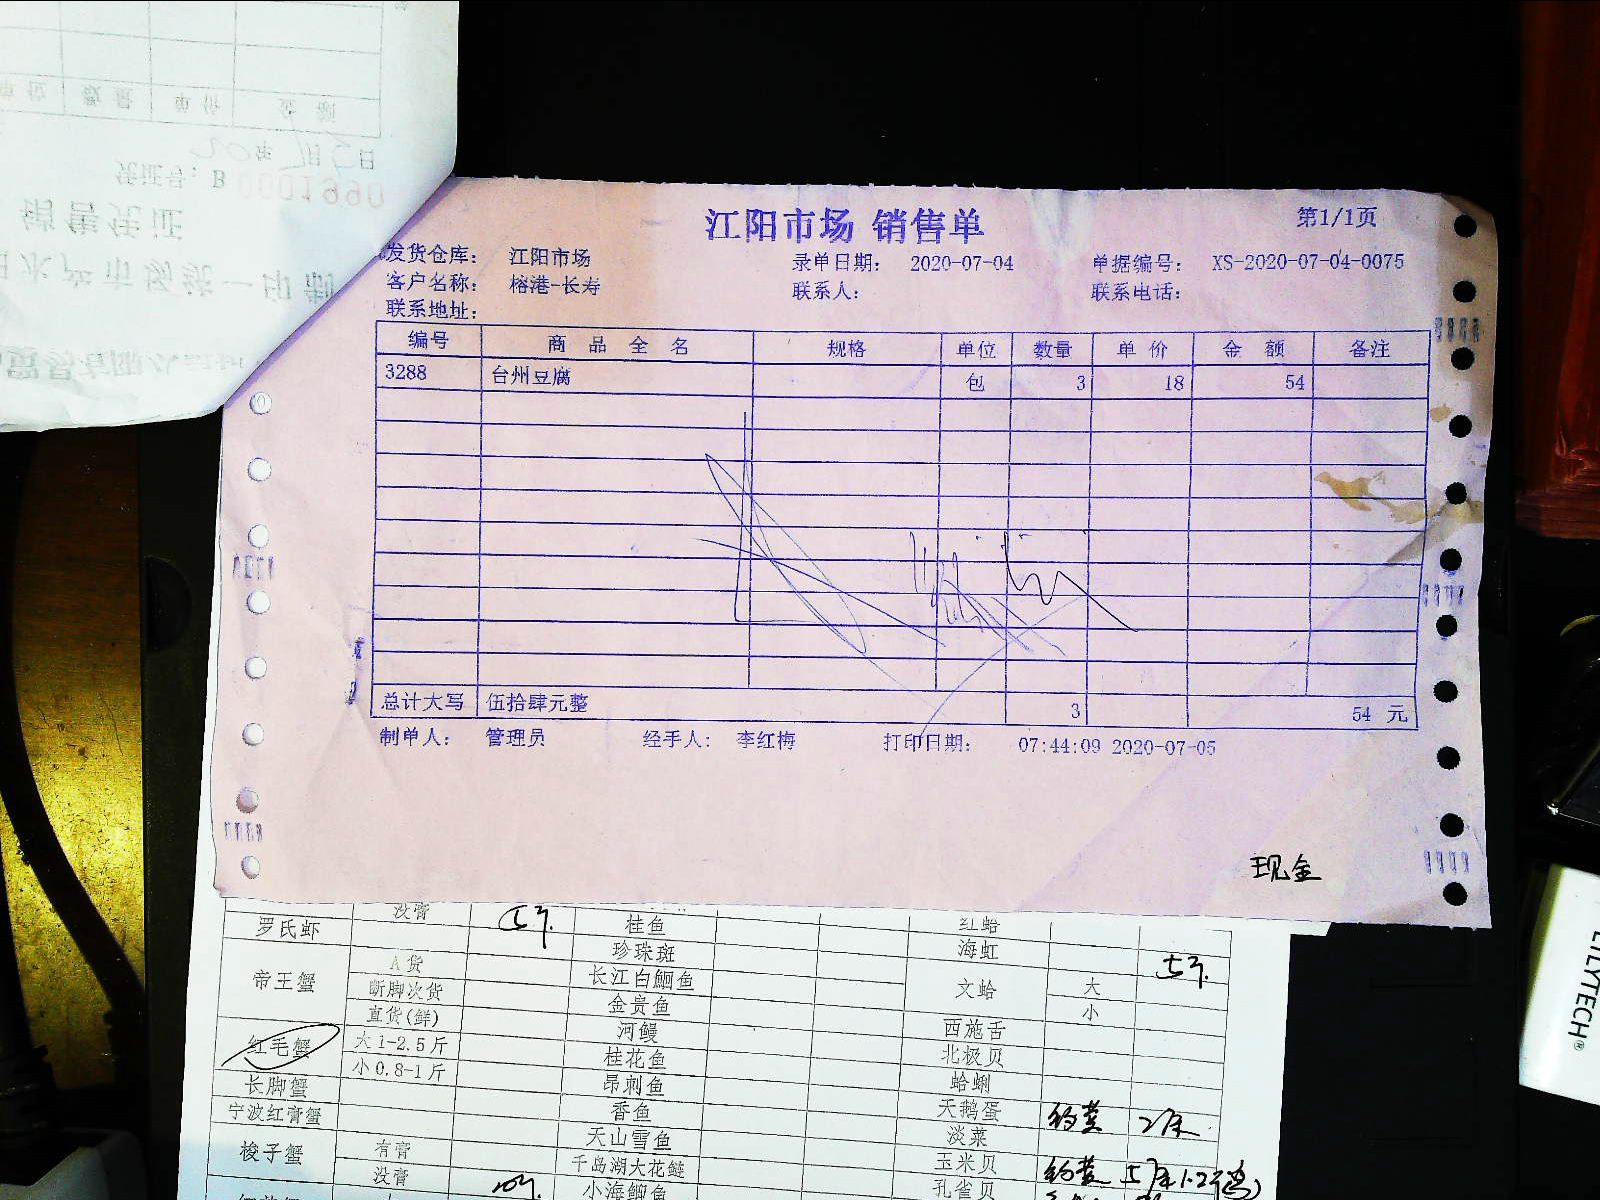 单位 数量 单价 金额
20年7月5日
凭证号：B 0001990
销售凭证
水产市场统一印制
江阳市场 销售单
第1/1页
发货仓库： 江阳市场 录单日期： 2020-07-04 单据编号： XS-2020-07-04-0075
客户名称： 榕港-长寿 联系人： 联系电话：
联系地址：
编号 商品全名 规格 单位 数量 单价 金额 备注
3288 台州豆腐 包 3 18 54
总计大写 伍拾肆元整 3 54 元
制单人： 管理员 经手人： 李红梅 打印日期： 07:44:09 2020-07-05
现金
没膏 红蛤
罗氏虾 桂鱼 海虹
珍珠斑
帝王蟹 A货 长江白鮰鱼 文蛤 大
断脚次货 金贵鱼 小
直货(鲜) 河鳗 西施舌
红毛蟹 大1-2.5斤 桂花鱼 北极贝
小0.8-1斤 昂刺鱼 蛤蜊
长脚蟹 香鱼 天鹅蛋
宁波红膏蟹 天山雪鱼 淡菜
梭子蟹 有膏 千岛湖大花鲢 玉米贝
没膏 小海鲫鱼 孔雀贝
LILYTECH®